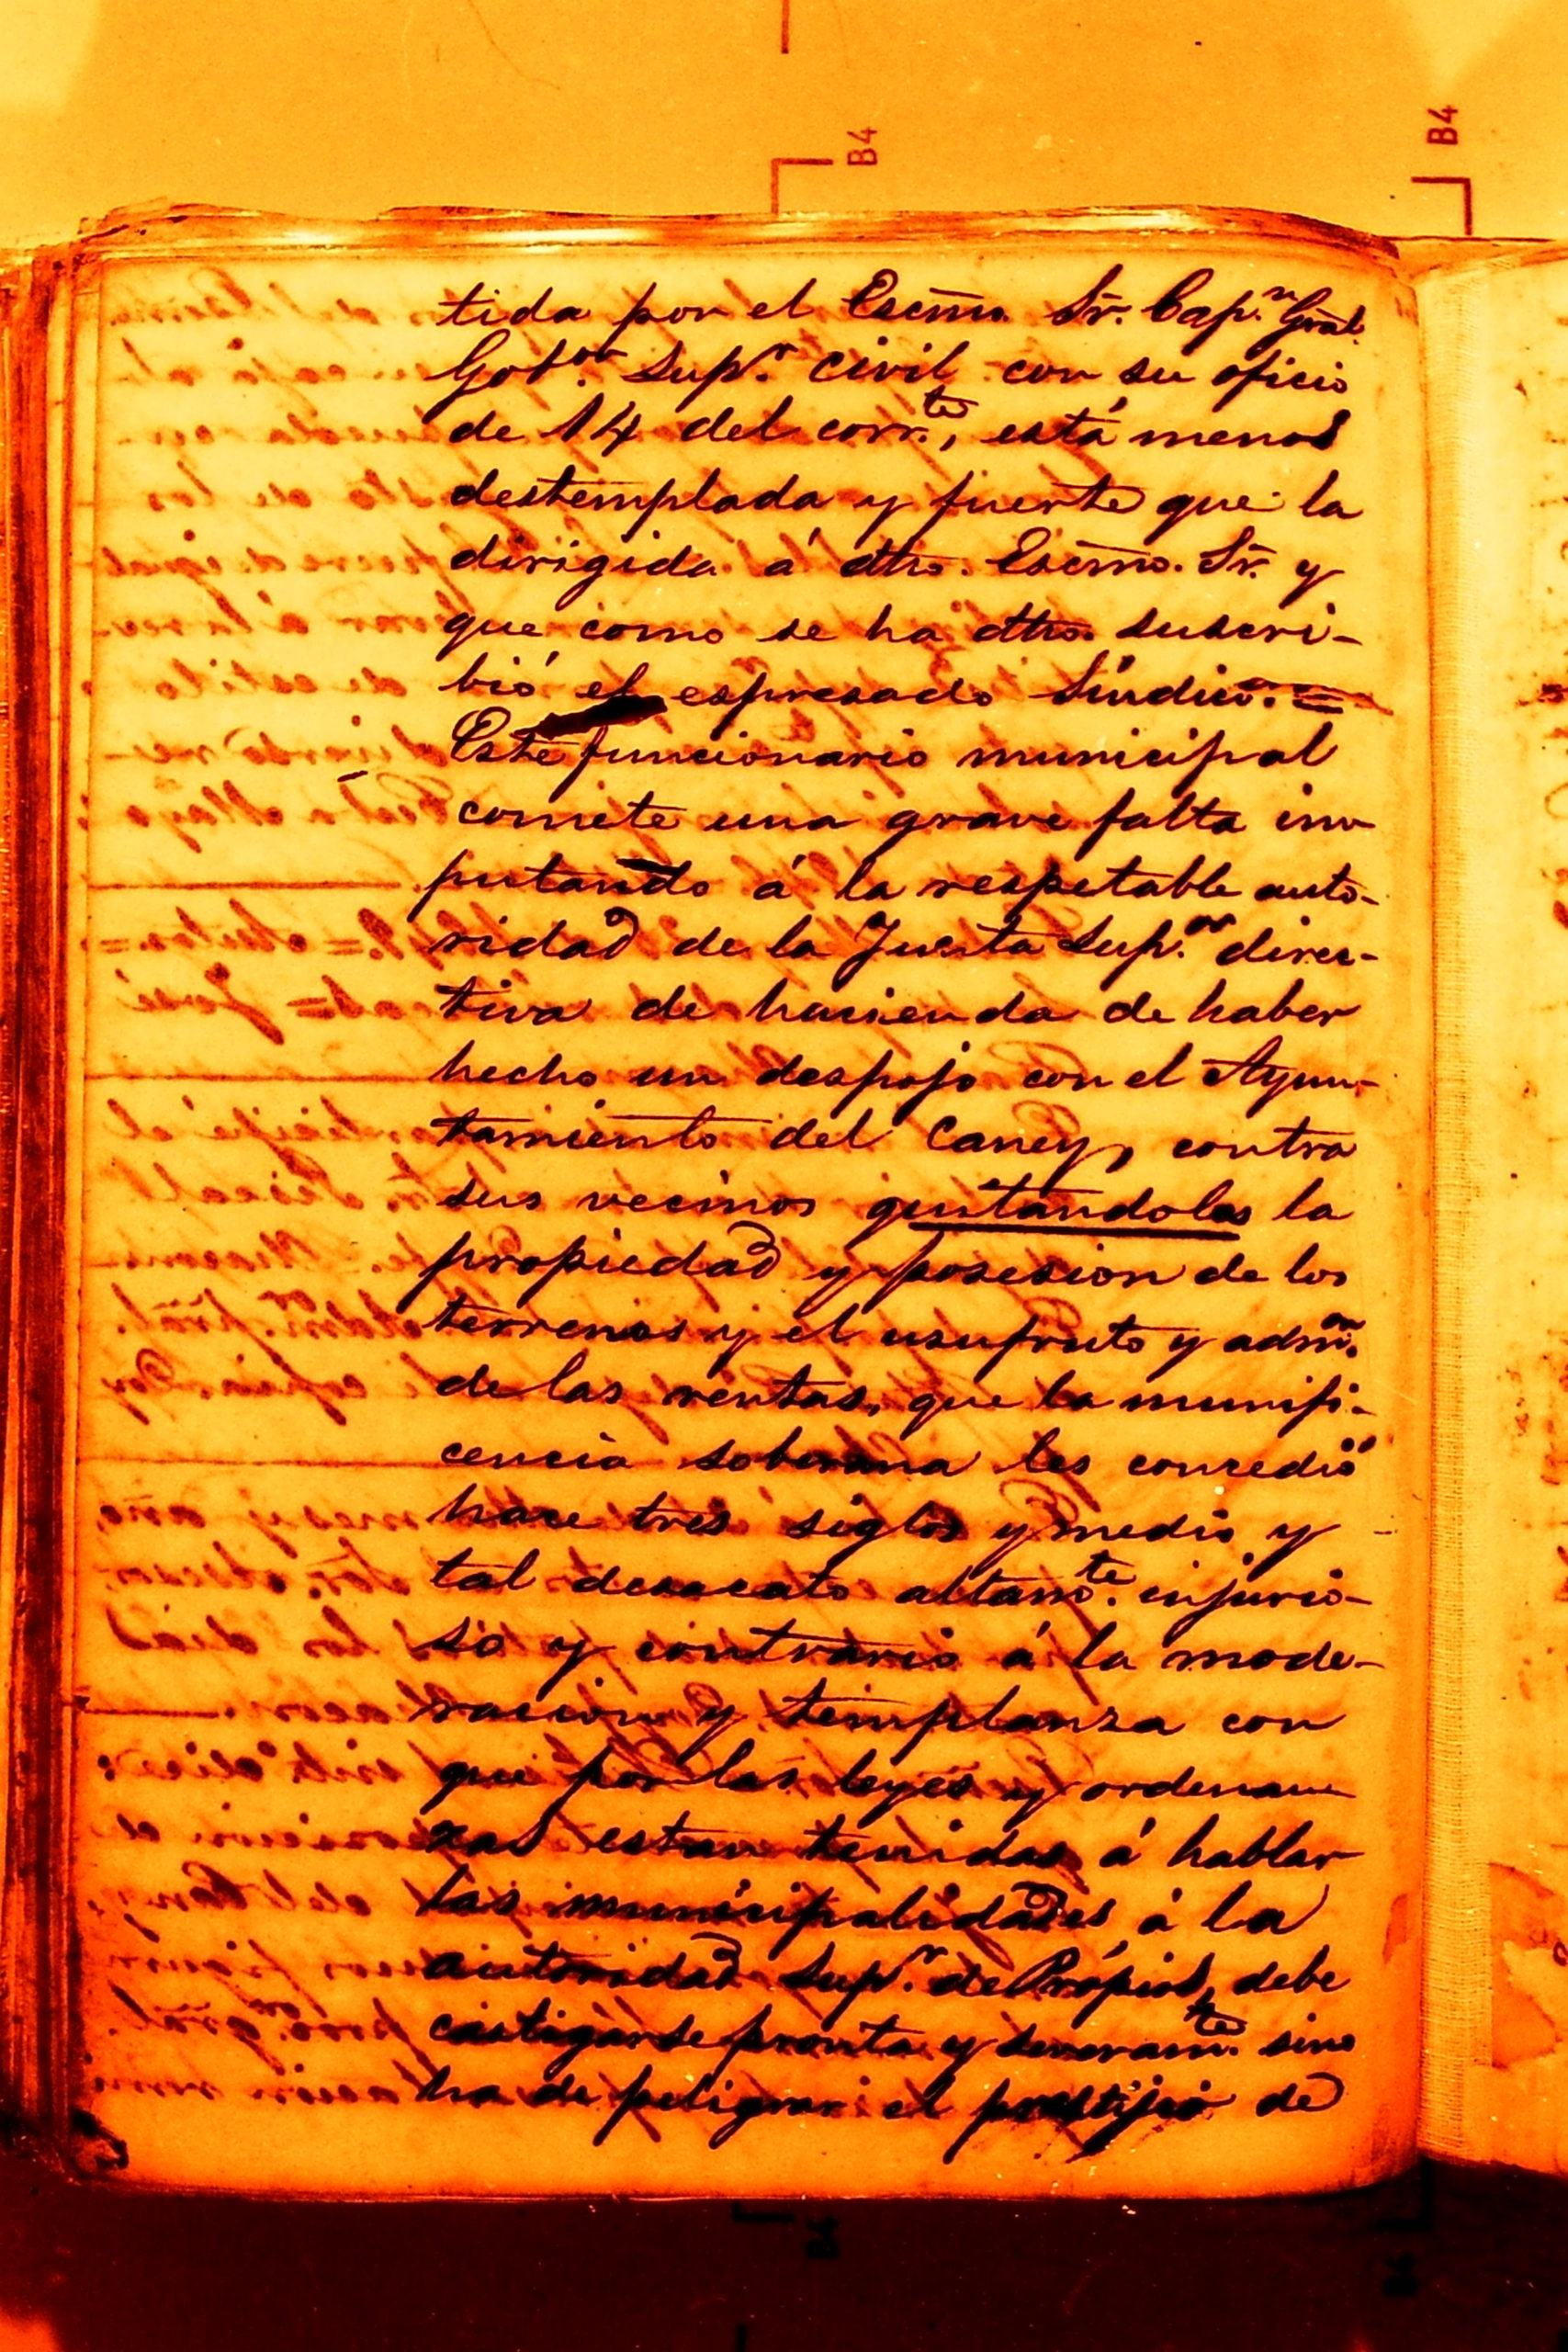 B4
B4
tida por el Escmo. Sr. Cap.n Gral.
Gob.or Sup.r civil con su oficio
de 14 del corr.te, está menos
destemplada y fuerte que la
dirigida á dho. Escmo. Sr. y
que como se ha dho. suscri-
bió el espresado Síndico. =
Este funcionario municipal
comete una grave falta im
putando á la respetable auto-
ridad de la Junta Sup.or direc-
tiva de hacienda de haber
hecho un despojo con el Ayun-
tamiento del Caney, contra
sus vecinos quitandoles la
propiedad y posesion de los
terrenos y el usufruto y adm.on
de las rentas, que la munifi-
cencia soberana les concedió
hace tres siglos y medio y
tal desacato altam.te injurio-
so y contrario á la mode-
racion y templanza con
que por las leyes y ordenan
zas estan tenidas á hablar
las municipalidades á la
autoridad Sup.r de Própios, debe
castigarse pronta y severam.te sino
ha de peligrar el prestijio de
B4